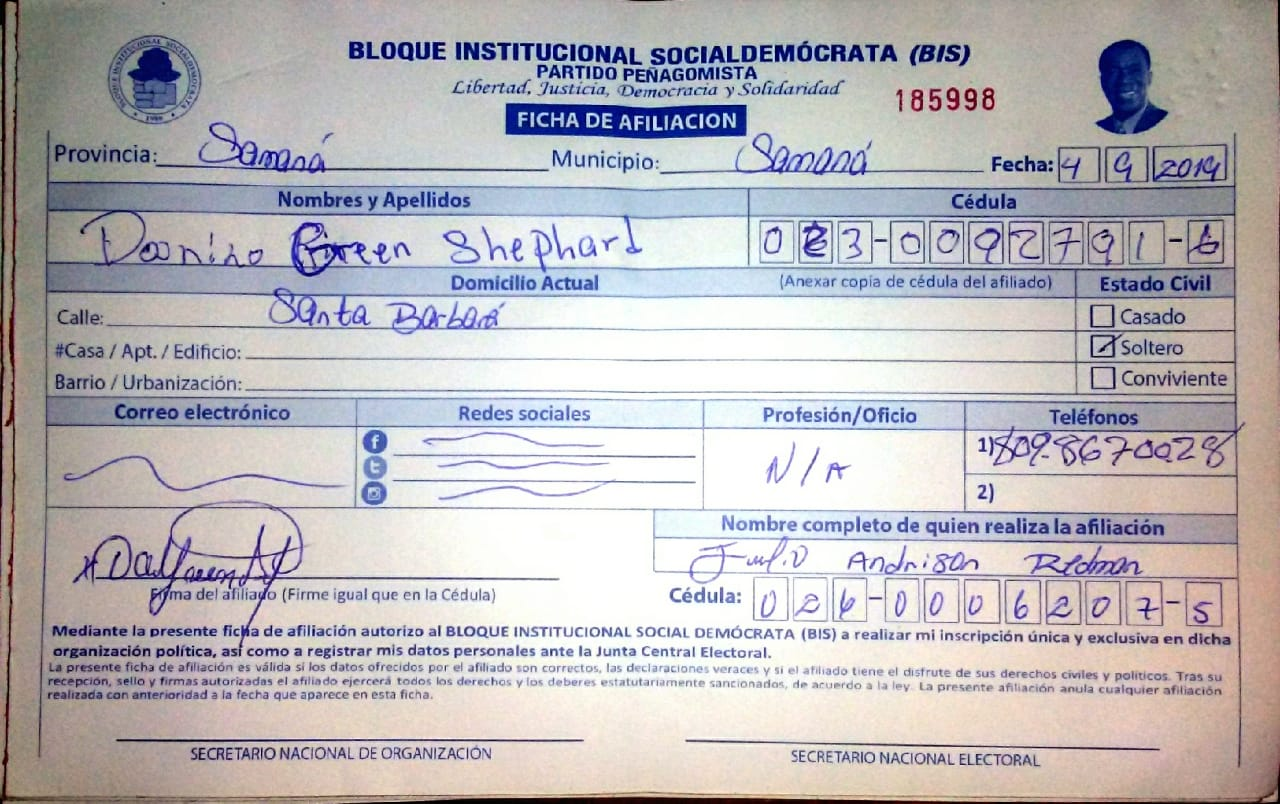 BLOQUE INSTITUCIONAL SOCIALDEMÓCRATA (BIS)
PARTIDO PEÑAGOMISTA
Libertad, Justicia, Democracia y Solidaridad
185998
FICHA DE AFILIACION
Provincia: Samaná Municipio: Samaná Fecha: 4 9 2019
Nombres y Apellidos Cédula
Green Shephard 0 3-0092791-6
Domicilio Actual (Anexar copia de cédula del afiliado) Estado Civil
Calle: Santa Barbará Casado
#Casa / Apt. / Edificio: Soltero
Barrio / Urbanización: Conviviente
Correo electrónico Redes sociales Profesión/Oficio Teléfonos
N/A 1) 809.8670028
2)
Nombre completo de quien realiza la afiliación
Julio Andrison Redman
Firma del afiliado (Firme igual que en la Cédula) Cédula: 026-0006207-5
Mediante la presente ficha de afiliación autorizo al BLOQUE INSTITUCIONAL SOCIAL DEMÓCRATA (BIS) a realizar mi inscripción única y exclusiva en dicha
organización política, así como a registrar mis datos personales ante la Junta Central Electoral.
La presente ficha de afiliación es válida si los datos ofrecidos por el afiliado son correctos, las declaraciones veraces y si el afiliado tiene el disfrute de sus derechos civiles y políticos. Tras su
recepción, sello y firmas autorizadas el afiliado ejercerá todos los derechos y los deberes estatutariamente sancionados, de acuerdo a la ley. La presente afiliación anula cualquier afiliación
realizada con anterioridad a la fecha que aparece en esta ficha.
SECRETARIO NACIONAL DE ORGANIZACIÓN SECRETARIO NACIONAL ELECTORAL